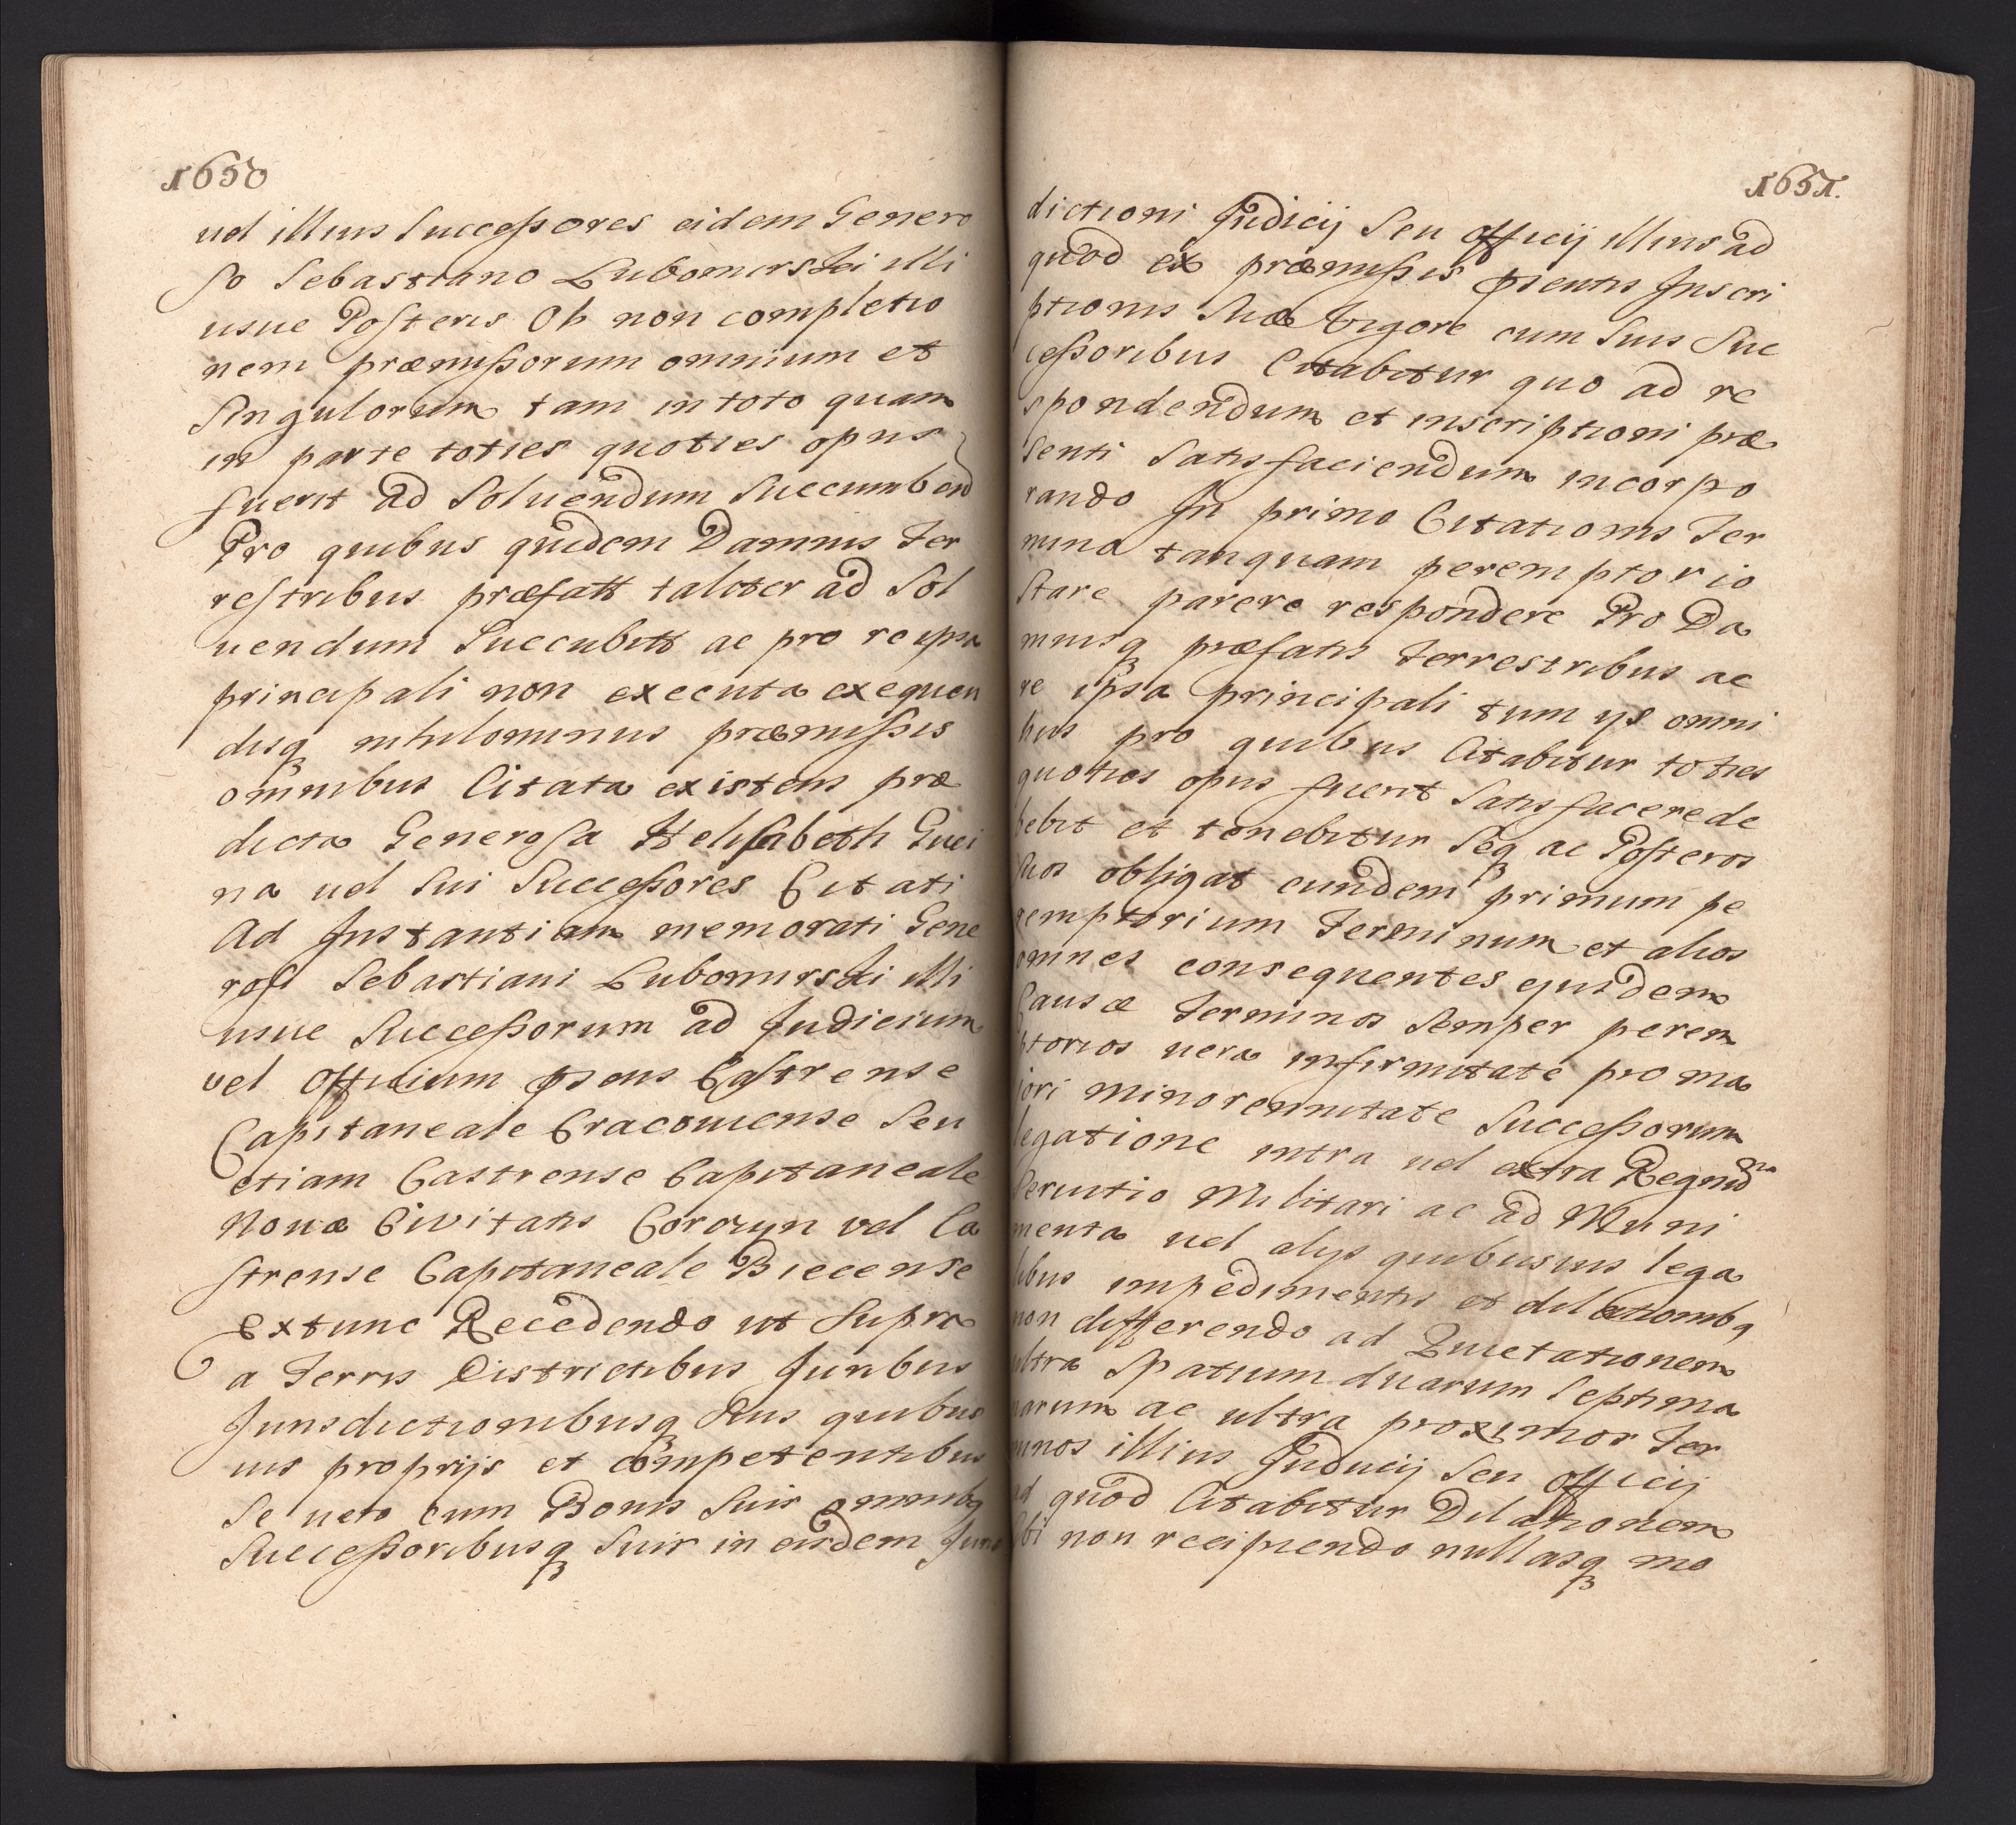 1650
uel illius Successores eidem Genero
so Sebastiano Lubomirski illi
usue Posteris Ob non completio
nem præmissorum omnium et
Singulorum tam in toto quam
in parte toties quoties opus
fuerit ad Soluendum Succumbend
Pro quibus quidem Damnis Ter
restribus præfatt taliter ad Sol
uendum Succubitt ac pro re ipsa
principali non executa exequen
disq nihilominus præmissis
omnibus Citata existens præ
dicta Generosa Helisabeth Guci
na uel Sui Successores Citati
Ad Instantiam memorati Gene
rosi Sebastiani Lubomirski illi
usue Successorum ad Judicium
vel Officium psens Castrense
Capitaneale Cracouiense Seu
etiam Castrense Capitaneale
Nouæ Civitatis Corczyn vel Ca
strense Capitaneale Biecense
Extunc Recedendo ut Supra
a Terris Districtibus Juribus
Jurisdictionibusq Suis quibus
uis proprijs et competentibus
Se uero cum Bonis Suis omnibq
Successoribusq Suis in eisdem Juris
1651.
dictioni Judicij Seu officij illius ad
quod ex præmissis psentis Inscri
ptionis Suæ vigore cum Suis Suc
cessoribus Citabitur quo ad re
spondendum et inscriptioni præ
senti Satisfaciendum incorpo
rando In primo Citationis Ter
mino tanquam peremptorio
Stare parere respondere Pro Da
mnisq præfatis Terrestribus ac
re ipsa principali tum ys omni
bus pro quibus Citabitur toties
quoties opus fuerit Satisfacere de
bebit et tenebitur Seq ac Posteros
Suos obligat eundem primum pe
remptorium Terminum et alios
omnes consequentes ejusdem
Causæ Terminos Semper perem
ptorios uera infirmitate pro ma
jori minorennitate Successorum
legatione intra uel extra Regnũ
Seruitio Militari ac ad Muni
menta uel alijs quibusuis lega
libus impedimentis et dilationibq
non differendo ad Quietationem
ultra Spatium duarum Septima
narum ac ultra proximos Ter
minos illius Judicij Seu Officij
ad quod Citabitur Dilationem
Sibi non recipiendo nullasq mo